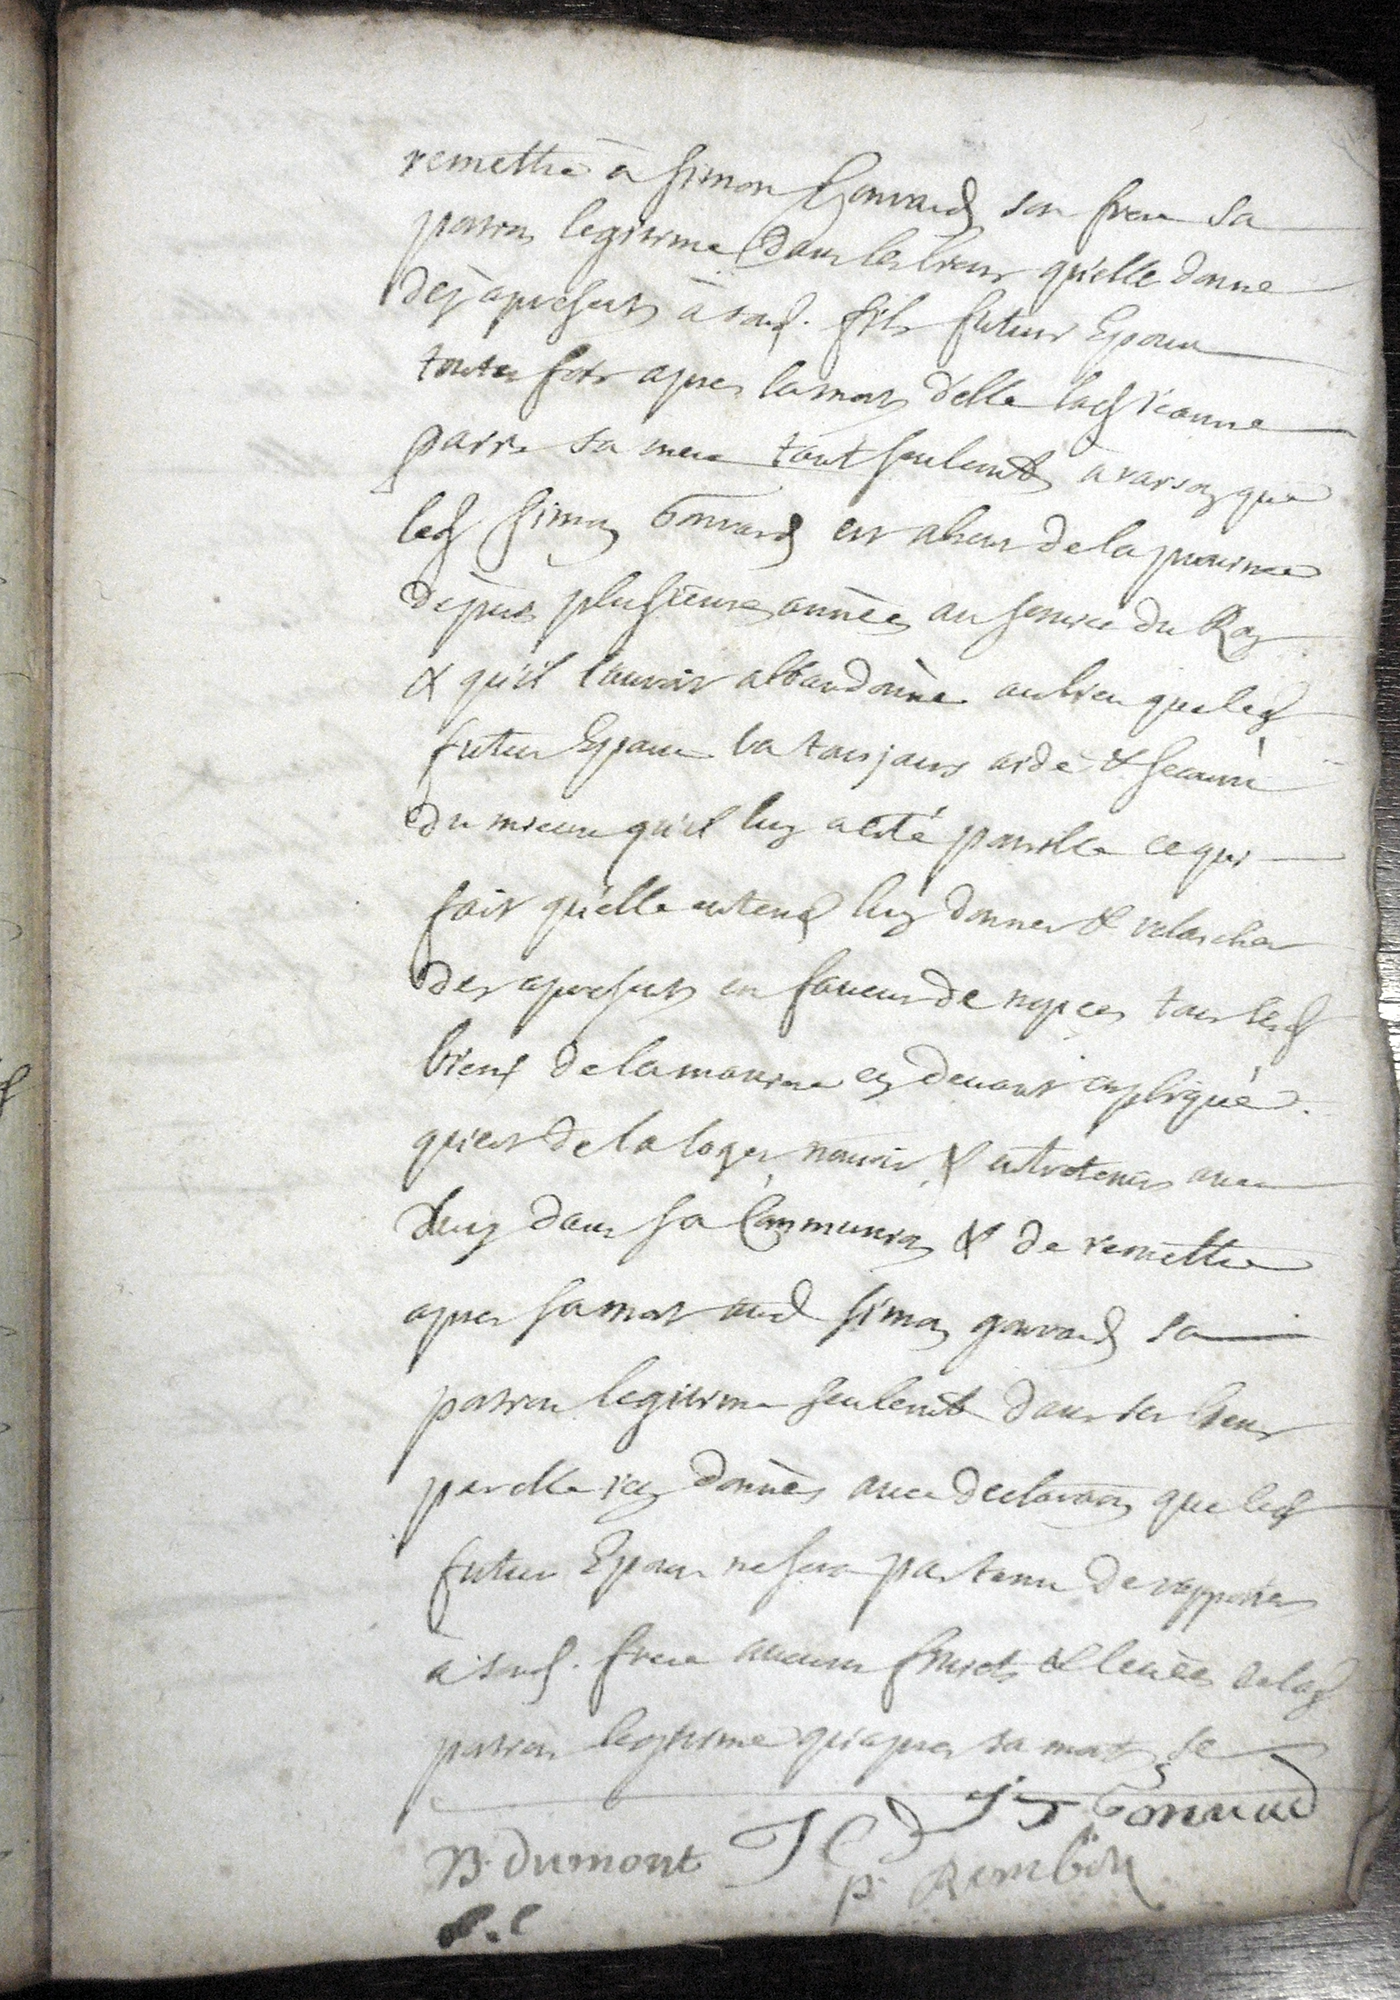 remettre à Simon Gonvard son frere sa
portion legitime dans les biens qu'elle donne
dez apresent à sond. fils futur Epoux
toutes fois apres la mort d'elle lad Jeanne
paris sa mere tout seulemt a raison que
led Simon Gonvard est absent de la province
depuis plusieurs années au service du Roy
& qu'il l'auroit abbandonnée au lieu que led
futur Epoux la toujours aidé & secouru
du mieux qu'il luy a esté possible ce qui
fait qu'elle entend luy donner & relascher
des apresent en faveur de nopces tous lesd
biens de la maniere cy devant expliquée
qui est de la loger nourir & entretenir avec
luy dans sa Communion & de remettre
apres sa mort aud Simon gonvard sa
portion legitime seulemt dans ses biens
par elle icy donnés avec declaration que led
futur Epoux ne sera pas tenu de rapporter
à sond. frere aucuns fruicts & levées de lad
portion legitime qu'apres sa mort se
J J Gonvard
B. Dumont J C D
p. Rembin